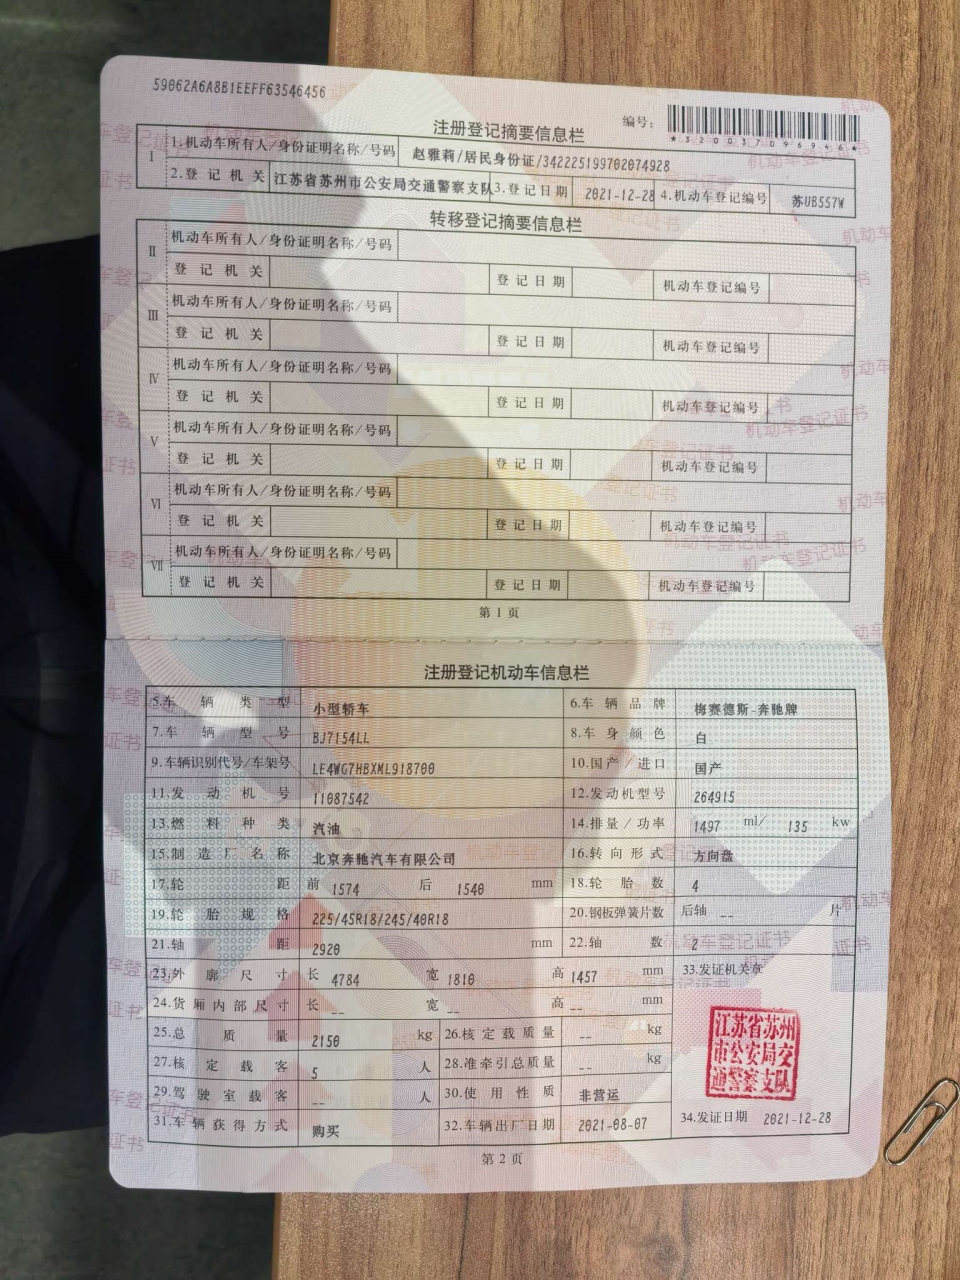 59062A6A8B1EEFF63546456
编号：
*320037096946*
注册登记摘要信息栏
Ⅰ 1.机动车所有人/身份证明名称/号码 赵雅莉/居民身份证/342225199702074928
2.登记机关 江苏省苏州市公安局交通警察支队 3.登记日期 2021-12-28 4.机动车登记编号 苏UB557W
转移登记摘要信息栏
Ⅱ 机动车所有人/身份证明名称/号码
登记机关 登记日期 机动车登记编号
Ⅲ 机动车所有人/身份证明名称/号码
登记机关 登记日期 机动车登记编号
Ⅳ 机动车所有人/身份证明名称/号码
登记机关 登记日期 机动车登记编号
Ⅴ 机动车所有人/身份证明名称/号码
登记机关 登记日期 机动车登记编号
Ⅵ 机动车所有人/身份证明名称/号码
登记机关 登记日期 机动车登记编号
Ⅶ 机动车所有人/身份证明名称/号码
登记机关 登记日期 机动车登记编号
第1页
注册登记机动车信息栏
5.车辆类型 小型轿车 6.车辆品牌 梅赛德斯-奔驰牌
7.车辆型号 BJ7154LL 8.车身颜色 白
9.车辆识别代号/车架号 LE4WG7HBXML918700 10.国产/进口 国产
11.发动机号 11087542 12.发动机型号 264915
13.燃料种类 汽油 14.排量/功率 1497 ml/ 135 kw
15.制造厂名称 北京奔驰汽车有限公司 16.转向形式 方向盘
17.轮距 前 1574 后 1540 mm 18.轮胎数 4
19.轮胎规格 225/45R18/245/40R18 20.钢板弹簧片数 后轴 -- 片
21.轴距 2920 mm 22.轴数 2
23.外廓尺寸 长 4784 宽 1810 高 1457 mm 33.发证机关章
24.货厢内部尺寸 长 -- 宽 -- 高 -- mm
25.总质量 2150 kg 26.核定载质量 -- kg
27.核定载客 5 人 28.准牵引总质量 -- kg
江苏省苏州
市公安局交
通警察支队
29.驾驶室载客 -- 人 30.使用性质 非营运
31.车辆获得方式 购买 32.车辆出厂日期 2021-08-07 34.发证日期 2021-12-28
第2页